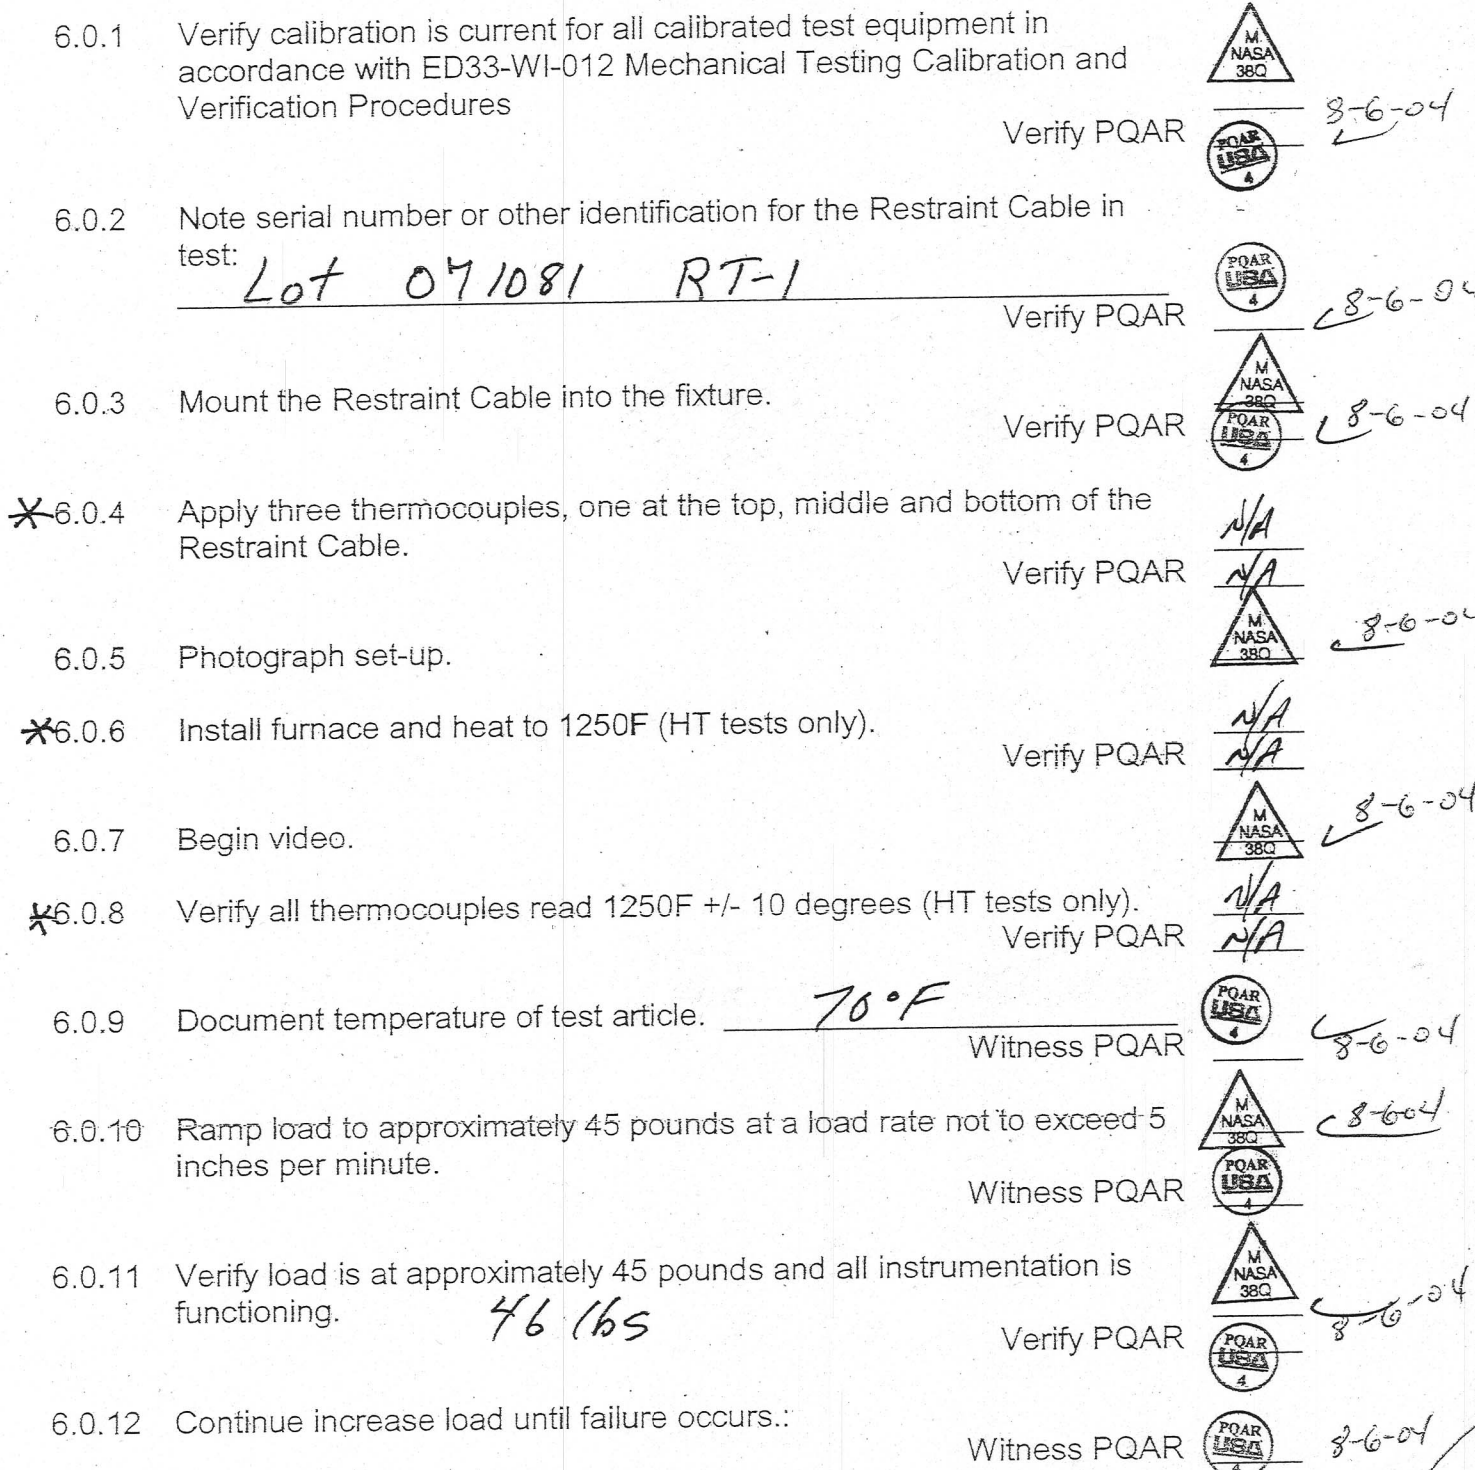 6.0.1 Verify calibration is current for all calibrated test equipment in
accordance with ED33-WI-012 Mechanical Testing Calibration and
Verification Procedures
M
NASA
38Q
Verify PQAR
PQAR
USA
4
8-6-04
6.0.2 Note serial number or other identification for the Restraint Cable in
test: Lot 071081 RT-1
Verify PQAR
PQAR
USA
4
8-6-04
6.0.3 Mount the Restraint Cable into the fixture.
M
NASA
38Q
Verify PQAR
PQAR
USA
4
8-6-04
*6.0.4 Apply three thermocouples, one at the top, middle and bottom of the
Restraint Cable.
N/A
Verify PQAR N/A
6.0.5 Photograph set-up.
M
NASA
38Q
8-6-04
*6.0.6 Install furnace and heat to 1250F (HT tests only).
N/A
Verify PQAR N/A
6.0.7 Begin video.
M
NASA
38Q
8-6-04
*6.0.8 Verify all thermocouples read 1250F +/- 10 degrees (HT tests only). N/A
Verify PQAR N/A
6.0.9 Document temperature of test article. 70°F
Witness PQAR
PQAR
USA
4
8-6-04
6.0.10 Ramp load to approximately 45 pounds at a load rate not to exceed 5
inches per minute.
M
NASA
38Q
8-604
Witness PQAR
PQAR
USA
4
6.0.11 Verify load is at approximately 45 pounds and all instrumentation is
functioning. 46 lbs
M
NASA
38Q
8-6-04
Verify PQAR
PQAR
USA
4
6.0.12 Continue increase load until failure occurs.:
Witness PQAR
PQAR
USA
4
8-6-04